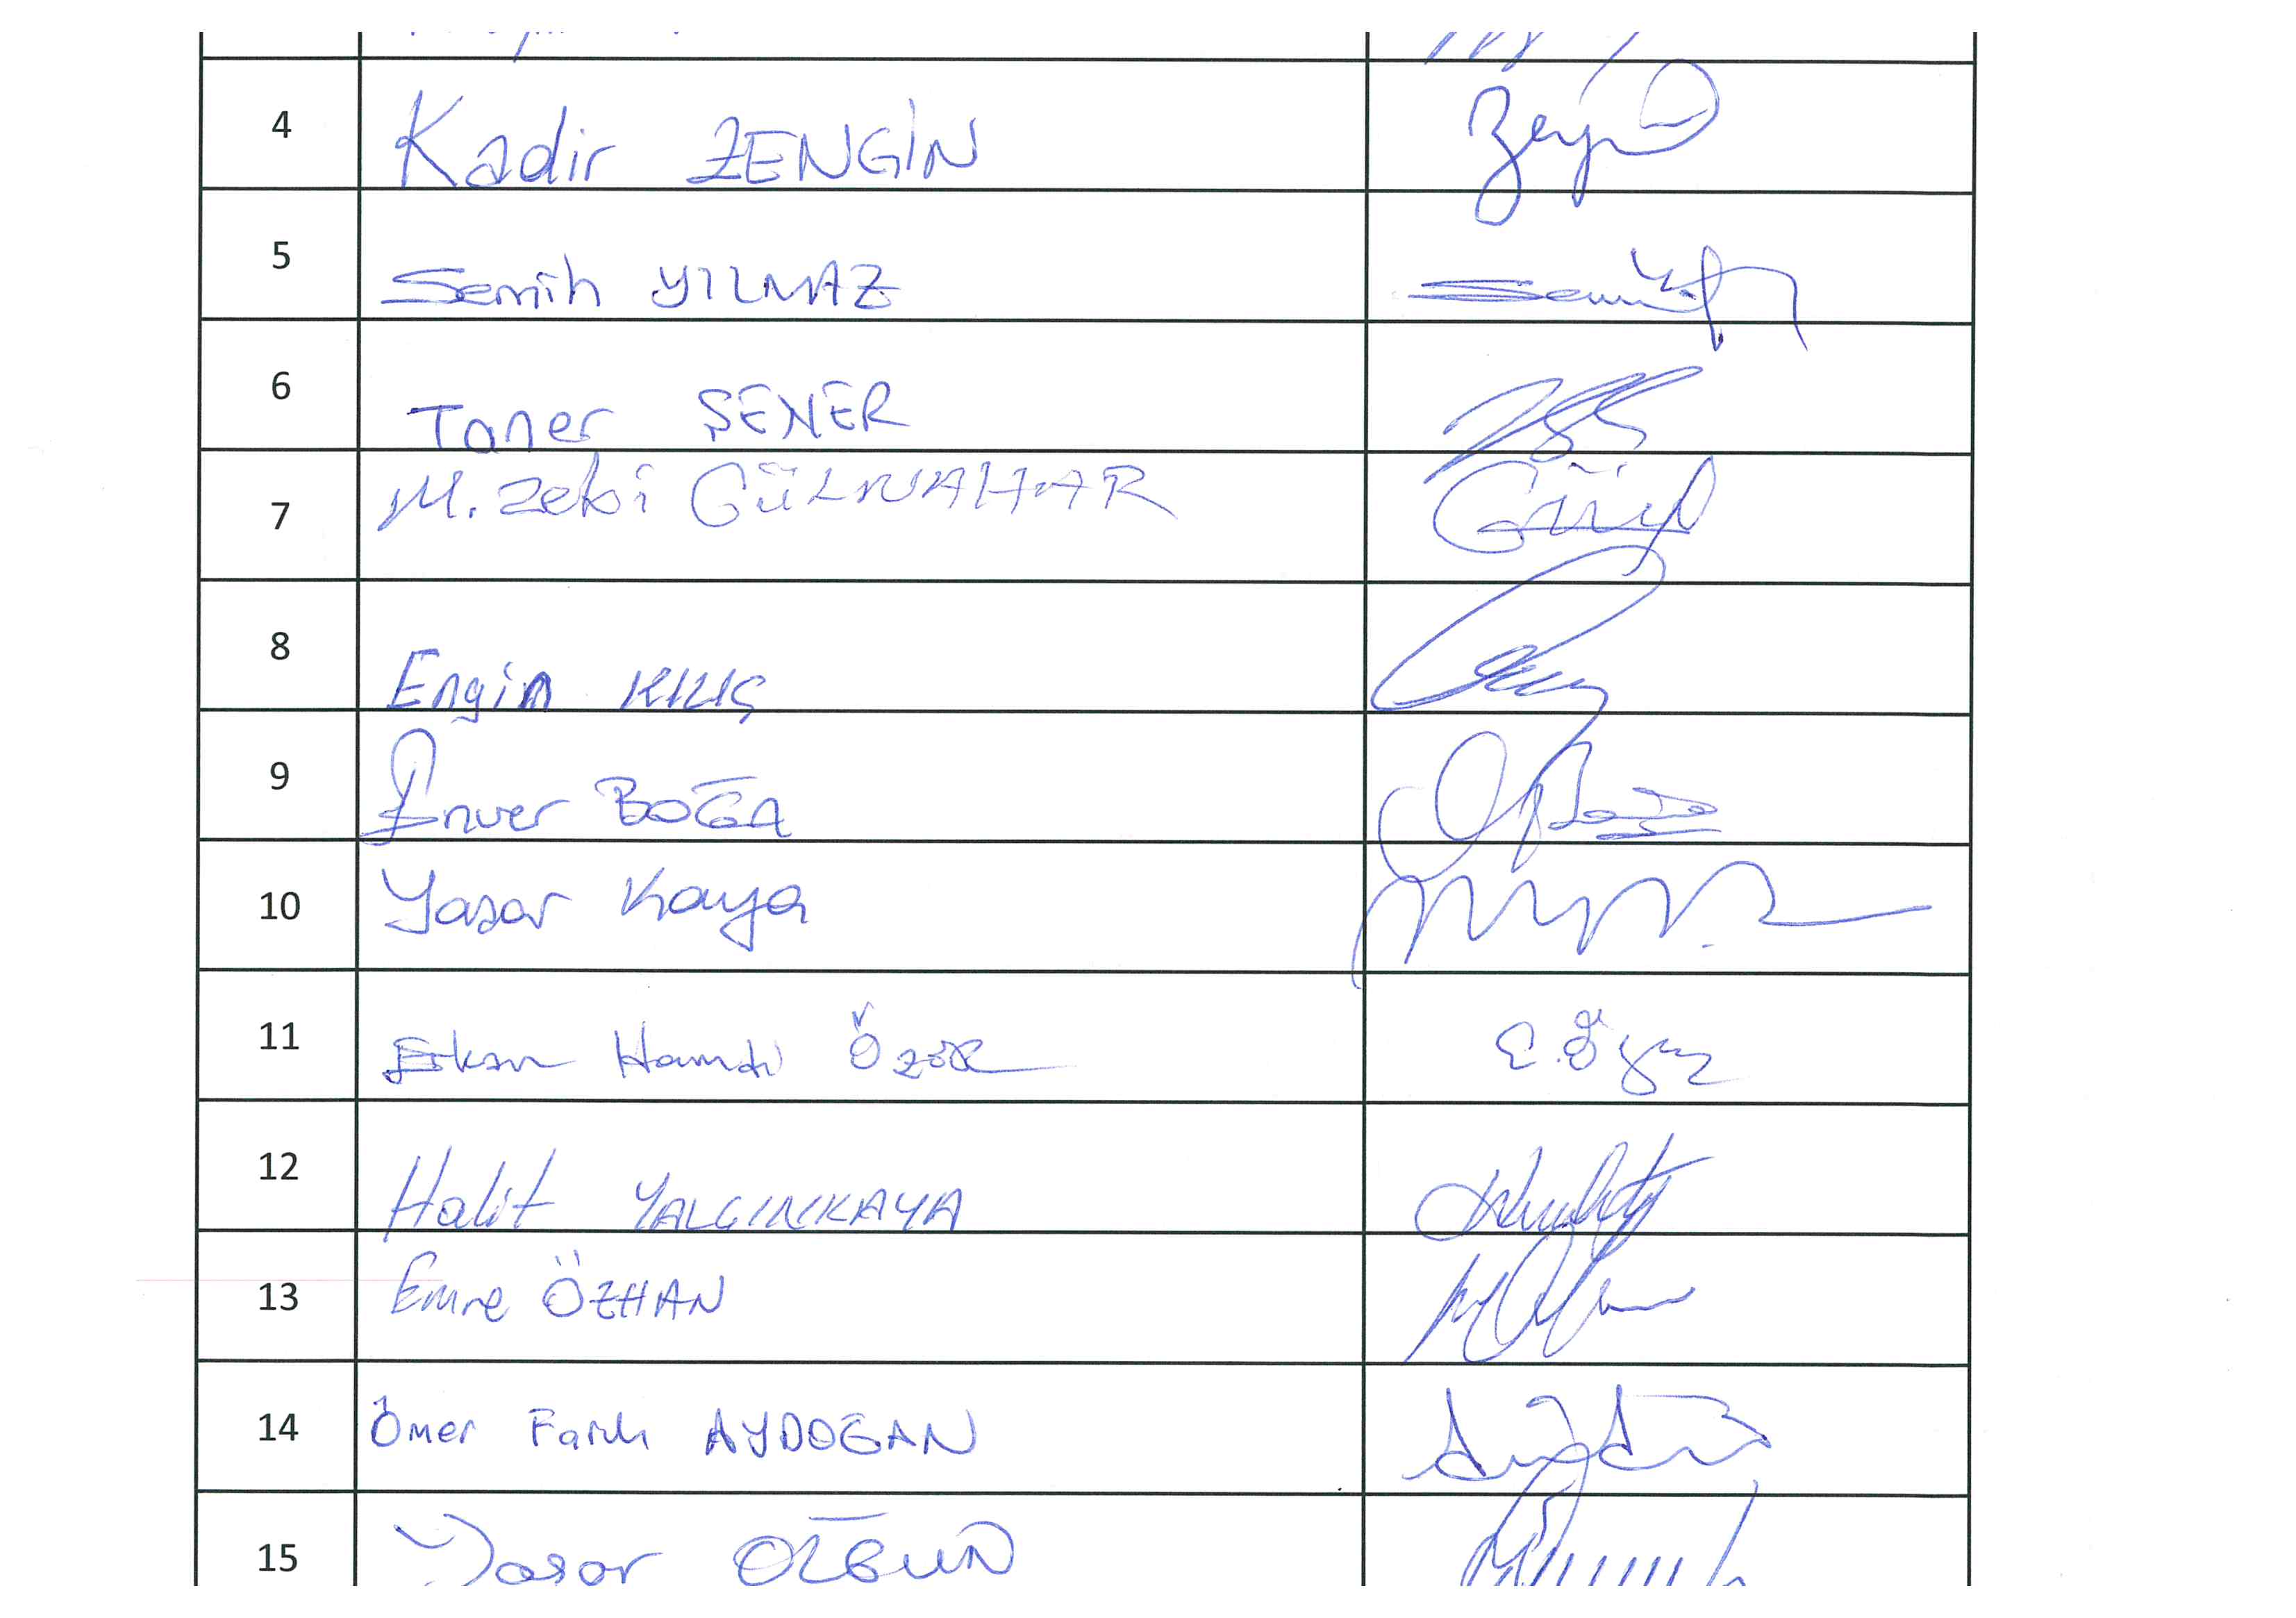 4 Kadir ZENGİN
5 Semih YILMAZ
6 Taner ŞENER
7 M. Zeki GÜLNAHAR
8 Engin KILIÇ
9 Enver BOĞA
10 Yaşar Kaya
11 Erkan Hamdi
12 Halit YALÇINKAYA
13 Emre ÖZHAN
14 Ömer Faruk AYDOĞAN
15 Yaşar OLGUN